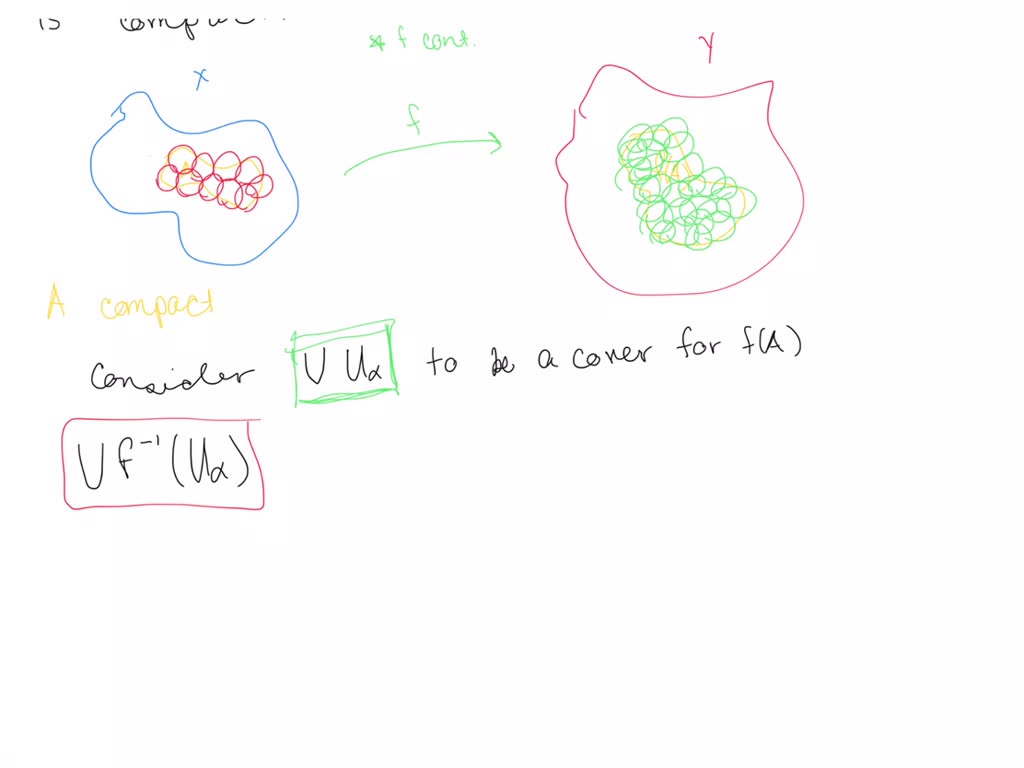 is compac
* f cont.
X
Y
f
A
A
A compact
Consider ∪ Uα to be a cover for f(A)
∪ f⁻¹(Uα)